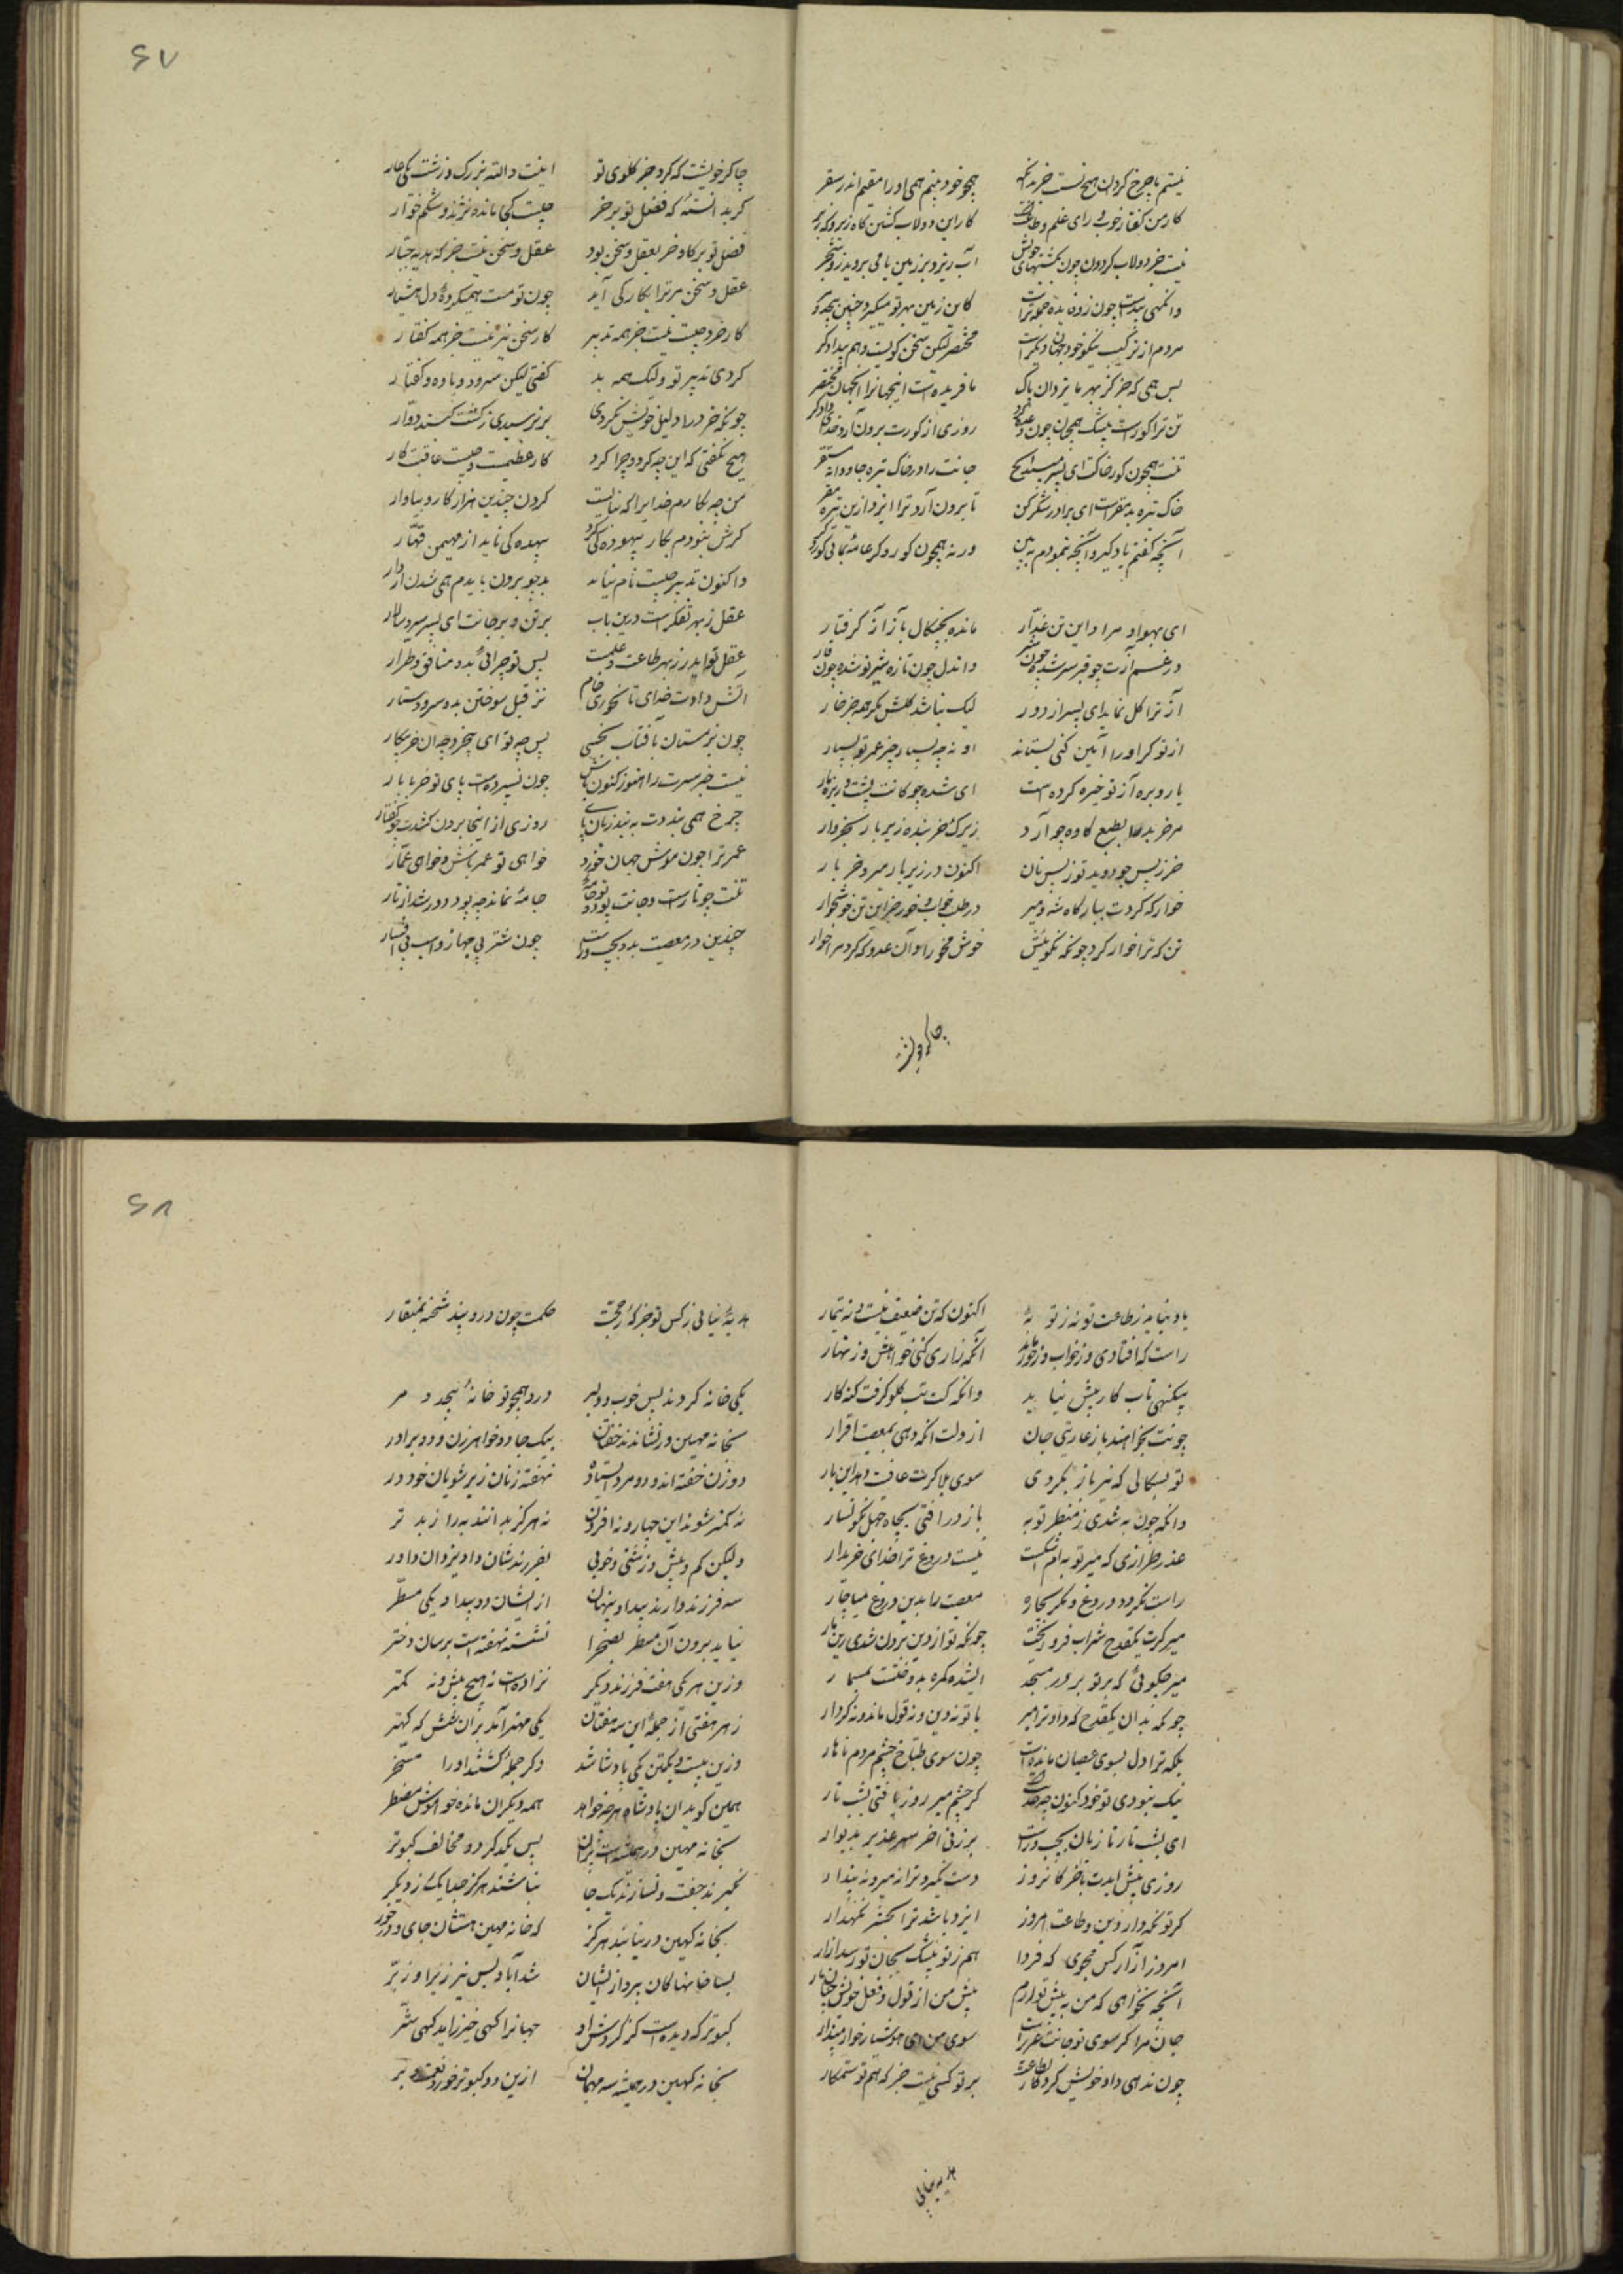 ۶۷
نیستم با چرخ گردون هیچ نسبت جز بدانکه همچو خود بینم همی او را مقیم اندر سفر
کار من گفتار خوب و رای علم و طاعتست کار این دولاب گشتن گاه زیر و گه زبر
نیست جز دولاب گردون چون بگشتنهای خویش آب ریزد بر زمین تا می بروید زو شجر
وانگهی پیداست چون زو فایده جمله تراست کاین زمین بهر تو میگردد چنین بیحد و
مردم از ترکیب نیکو خود جهان دیگر است مختصر لیکن سخن گویست و هم پیدادگر
پس همی که جز کز بهر ما یزدان پاک نافریده است اینجهانرا انجهان مختصر
تن ترا گورست بیشک همچنان چون وعده کرد روزی از گورت برون آرد خدای دادگر
تنت همچون گور خاکست ای پسر مپسند هیچ جانت را در خاک تیره جاودانه مستقر
خاک تیره بد مقرست ای برادر شکر کن تا برون آرد ترا ایزد ازین تیره مقر
آنچه گفتم یاد گیر و آنچه بنمودم ببین ورنه همچون کور و کر عامه بمانی کور و کر
ای بهوا و مراد این تن غدار مانده بچنگال باز آز گرفتار
در غم آزت چو قیر سر شده چون شیر واندل چون تازه شیر تو شده چون قار
آز ترا گل نماید ای پسر از دور لیک نباشد گلش مگر همه جز خار
از تو گر او را آمین کنی بستاند او نه چه بسیار چیز عمر تو بسیار
یار و بره آز تو خیره کرده است ای شده چو کانت پشت در ره بار
هر خر بد را بطبع گاوه جو آرد زیرک خربنده زیر بار بخروار
خر ز پس جو دوید تو ز پس نان اکنون در زیر بار میرو خر بار
خوار که کردت ببارگاه شه و میر در طلب خواب و خور جز این تن خونخوار
تن که ترا خوار کرد چونکه نگوئیش خوش مخور ای آن عدو که کرد مرا خوار
چاکر خویشت
چاکر خویشت که کرد جز گلوی تو اینت والله بزرگ و زشت یکی عار
گربد انسته که فضل تو بر خر چیست کجا مانده نژند و شکم خوار
فضل تو بر گاو و خر بعقل و سخن بود عقل و سخن نیست جز که هدیه جبار
عقل و سخن مر ترا بکار کی آید چون تو مست همیگردی و دل هشیار
کار خرد چیست نیست جز همه تدبیر کار سخن نیز نیست جز همه گفتار
کردی تدبیر تو ولیک همه بد گفتی لیکن سرود و یاوه و گفتار
چونکه خرد را دلیل خویش نکردی برنرسیدی ز گشت گنبد دوار
هیچ نگفتی که این چه کرد و چرا کرد کار عظیمست چیست عاقبت کار
من چه بکارم خدایرا که ببایست کردن چندین هزار کار و بیاوار
گرش نبودم بکار بیهوده کی کرد بیهده کی ناید از مهیمن قهار
واکنون تدبیر چیست تام نیاید بد چو برون بایدم همی شدن از دار
عقل ز بهر تفکرست درین باب بر تن و بر جانت ای پسر سرو سالار
عقل تو ایدر ز بهر طاعت و علمست پس تو چرائی بدو منافق و طرار
آتش دادت خدای تا نخوری خام نز قبل سوختن بدو سرو دستار
چون بزمستان بآفتاب بخسبی پس چه تو ای بیخرد چه آن خر بیکار
نیست خبر مرت را هنوز کنون باش چون بسپردست پای تو خر با بار
چرخ همی بنددت به بند زبان پای روزی از اینجا برون کشدت چو کفتار
عمر ترا چون موش جهان خورد خواهی تو عمر باش و خواهی عمار
تنت چو تارست و جانت پود و تو جامه جامه نماند چو پود دور شد از تار
چندین در معصیت بدو چپ و راست چون شتر بی مهار و اسب بی افسار
۶۸
یاد نیاید ز طاعت تو نه ز توبه اکنون که تن ضعیف نیست و نه بیمار
راست که افتادی و ز خواب و ز خور ماند آنگه زاری کنی خواهش و زنهار
بیگنهی تاب کار پیش نیاید وانگه که ت تب گلو گرفت گنه کار
چونت بخواهند باز عاریتی جان از دلت آنگه دهی بمعصیت اقرار
تو بسگالی که نیز باز نگردی سوی بلا گرت عافیت دهد این بار
وانگه چون به شدی ز منظر توبه باز درافتی بچاه جهل نگونسار
عذر طرازی که میر توبه ام اشکست نیست دروغ ترا خدای خریدار
راست نگردد دروغ و مکر بچاره معصیت را بدین دروغ میاچار
میر گرت یکقدح شراب فرو ریخت چونکه تو از دین برون شدی زین بار
میر چگوئی که بر تو بر در مسجد
چونکه بدان یکقدح که داد ترا میر با تو نه دین و نه قول ماند و نه کردار
بلکه ترا دل بسوی عصیان مانده است چون سوی طباخ چشم مردم ناهار
نیک نبودی تو خود کنون چه حدیث است گر چشم میر روز یافتی بشب تار
ای بشب تار تازیان بچپ و راست برزنی آخر سر عزیز بدیوار
روزی پیش آیدت بآخر کانروز دست نگیرد ترا نه میر و نه بندار
گر تو نگه دار دین و طاعت امروز ایزد باشد ترا بحشر نگهدار
امروز آزار کس مجوی که فردا هم ز تو بیشک بجان تو رسد آزار
آنچه نخواهی که من به پیش تو آرم پیش من از قول و فعل خویش چنان مار
جان مرا گر سوی تو جانت عزیزست سوی من ای هوشیار خوار مپندار
چون ندهی داد خویش کردگار بطاعت بر تو کسی نیست جز که هم تو ستمکار
هدیه نیابی
هدیه نیابی ز کس تو جز که ز حجت حکمت چون در و پند سخته بمنقار
یکی خانه کردند بس خوب و دلبر درو همچو تو خانه بیحد و مر
بخانه مهین در نشاندند جفتان بیک جا دو خواهر زن و دو برادر
دو زن خفته اند و دو مرد ایستاده نهفته زنان زیر شویان خود در
نه کمتر شوند این چهار و نه افزون نه هرگز بدانند به را ز بدتر
ولیکن کم و بیش و زشتی و خوبی بفرزندشان داد یزدان داور
سه فرزند دارند پیدا و پنهان از ایشان دو پیدا و یکی مستر
نیاید برون آن مسطر بصحرا نشسته نهفته است بر سان دختر
وزین هر یکی هفت فرزند دیگر نزاده است نه هیچ بیش و نه کمتر
ز هر هفتی از جمله این سه هفتان یکی مهتر آمد بر آن شش که کهتر
وزین بیست و یکتن یکی پادشا شد دگر جمله گشتند او را مسخر
همین گوید آن پادشاه هر چه خواهد همه دیگران مانده خواموش مضطر
بخانه مهین در همیشه است پران پس یکدگر دو مخالف کبوتر
نگیرند جفت و نسازند یک جا نباشند هرگز جدا یک ز دیگر
بخانه کهین در نیایند هرگز که خانه مهین هستشان جای و درخور
بسا خانمانها کان بپرواز ایشان شد آباد و بس نیز زیر و زبر
کبوتر که دیده است کز گردش او جهانرا کهی خیر زاید کهی شر
بخانه کهین در همیشه سه مهمان ازین دو کبوتر خورد نعمت و بر